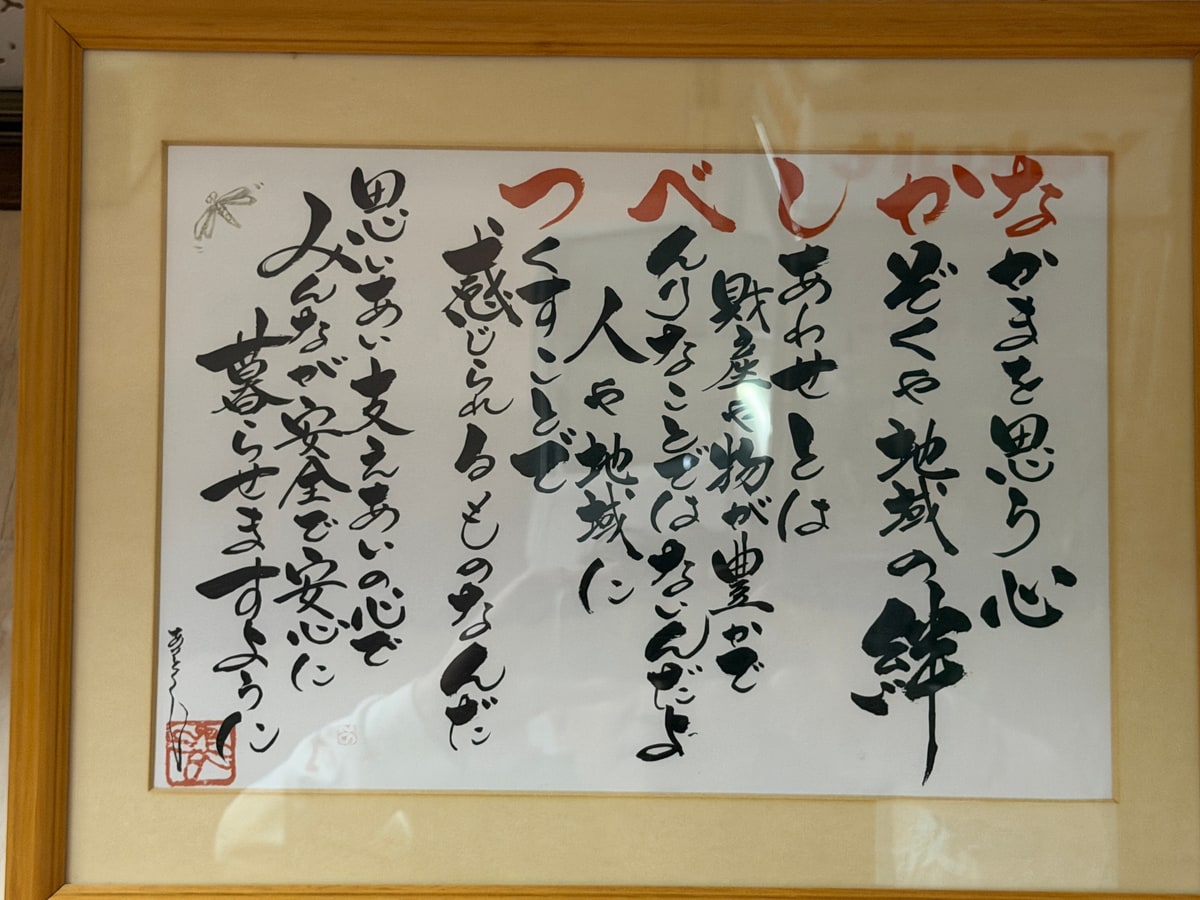 なかまを思う心
かぞくや地域の絆
しあわせとは
財産や物が豊かで
べんりなことではないんだよ
人や地域に
つくすことで
感じられるものなんだ
思いあい支えあいの心で
みんなが安全で安心に
暮らせますように